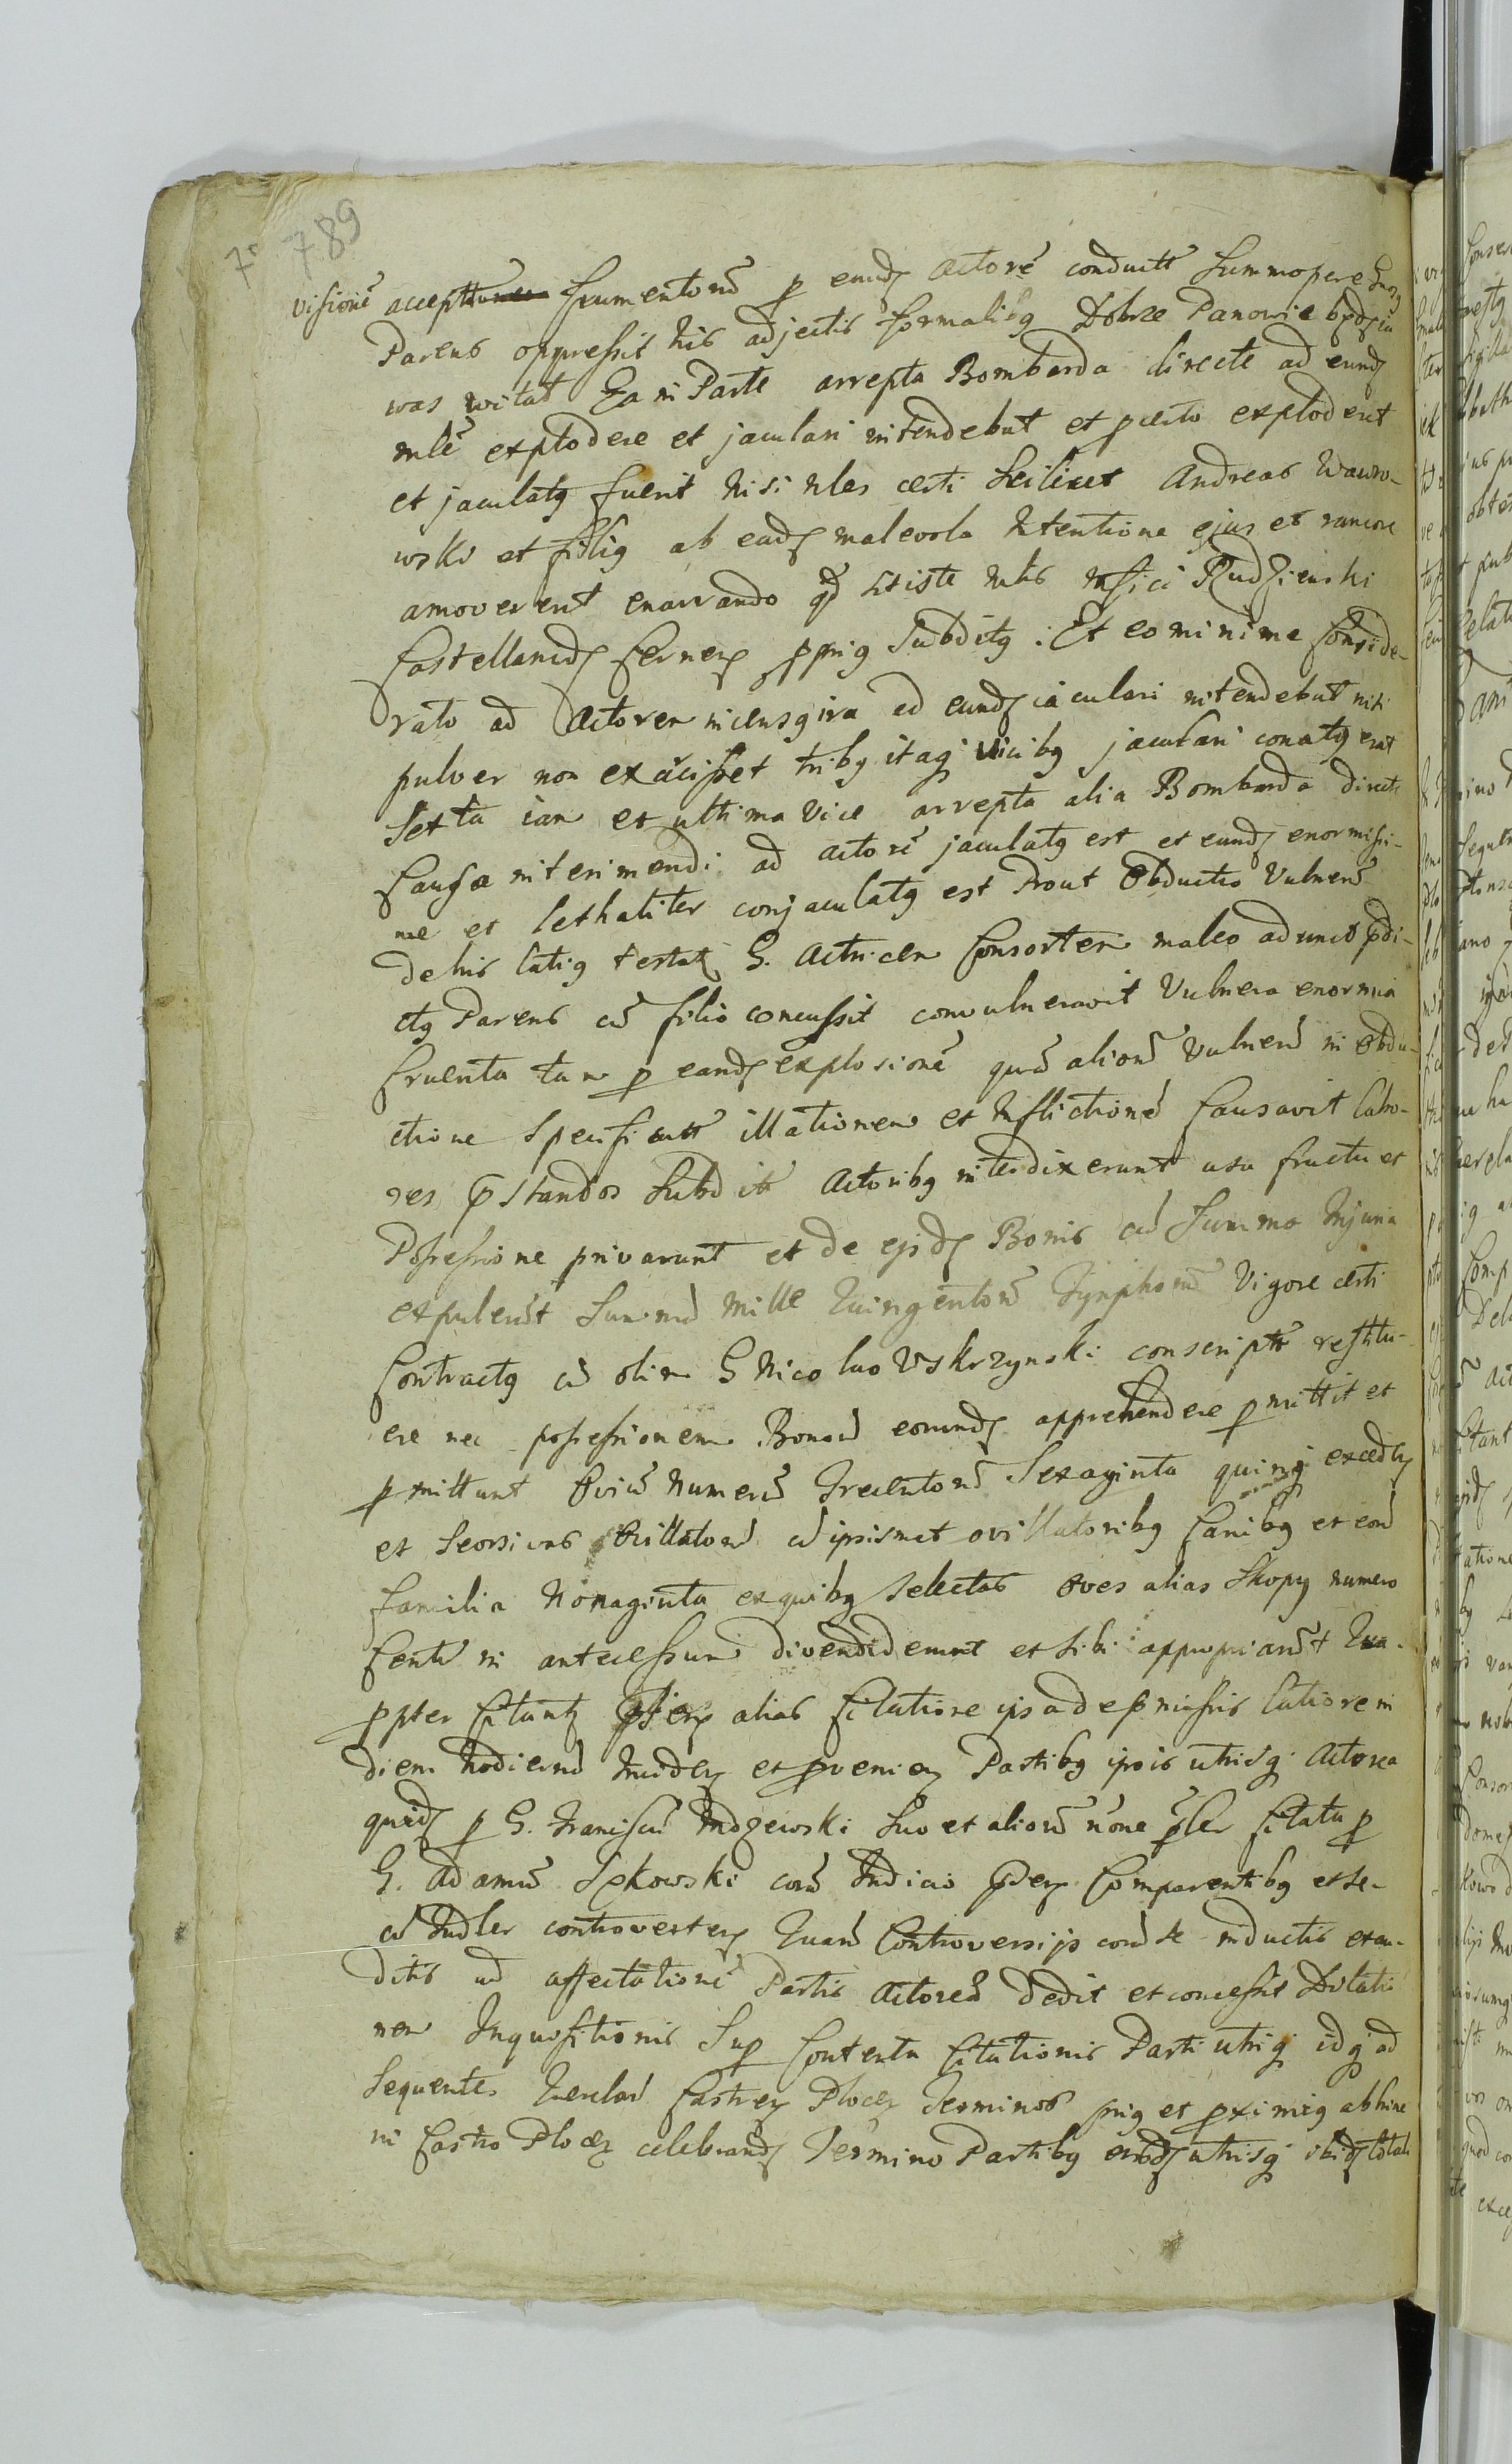 789
visionē accept frumentorū p eund actorē conductt summopere
Parens oppressit his adjectis formalibg Dobrze Panowie będę ia
was witał Ea in Parte arrepta Bombarda directe ad eund
mlē explodere et jaculari intendebat et pcerto exploderet
et jaculatg fuerit nisi nles certi scilicet Andreas Wawro-
wski et filig ab ead malevola Intentione ejus et rancore
amoverent enarrando qd iste mfici Rudzienski
Castellanid Cernen pprig Subditg. Et eo minime Conside-
rato ad Actorem ad eund iaculari intendebat nisi
pulver non exarcisset tribg itaq vicibg jaculari conatg erat
Sexta iam et ultima vice arrepta alia Bombarda directe
Causa interimendi ad actorē jaculatg est et eund enormissi-
me et lethaliter conjaculatg est Prout Obductio Vulnerū
de his latig testat G. Actricem Consortem maleo adunco pdi-
ctg Parens cū filio concussit convulneravit Vulnera enormia
Cruenta tam p eand explosionē quā aliorū Vulnerū in Obdu-
ctione specificatt illationem et Inflictionē Causavit labo-
res pstandos Subditt Actoribg interdixerunt usu fructu et
Possessione privarunt et de ejsd Bonis cū Summa Injuria
expulerūt Summā Mille Quingentorū Tynphorū Vigore certi
Contractg cū olim G Nicolao Uskrzynski conscriptt restitu-
ere nec possessionem Bonorū eorund apprehendere pmittit et
pmittunt Oviū numerū Trecentorū Sexaginta quinq exceden
et seorsivas Ovillatorū cū ipsismet ovillatoribg Canibg et eorū
familia Nonaginta ex quibg selectas Oves alias Skopy numero
Centū in antecessum divendiderunt et sibi appropriarūt Qua-
ppter Citantt pter alias Citatione ipsa depmissis latiore in
diem hodiernū Inciden et pvenien Partibg ipsis utrisq Actorea
quid p G. Franciscū suo et aliorū nōne pler Citata p
G. Adamū corā Judicio pnti Comparentibg et se-
cū Judler controverten Quarū Controversijs corā se inductis exau-
ditis ad affectationē Partis Actoreā dedit et concessit Dilatio
nem Inquisitionis Sup Contenta Citationis Parti utriq idq ad
Sequentes Querelarū Castren Plocen Terminos prig et pximig abhinc
in Castro Plocen celebrand Termino Partibg utrisq